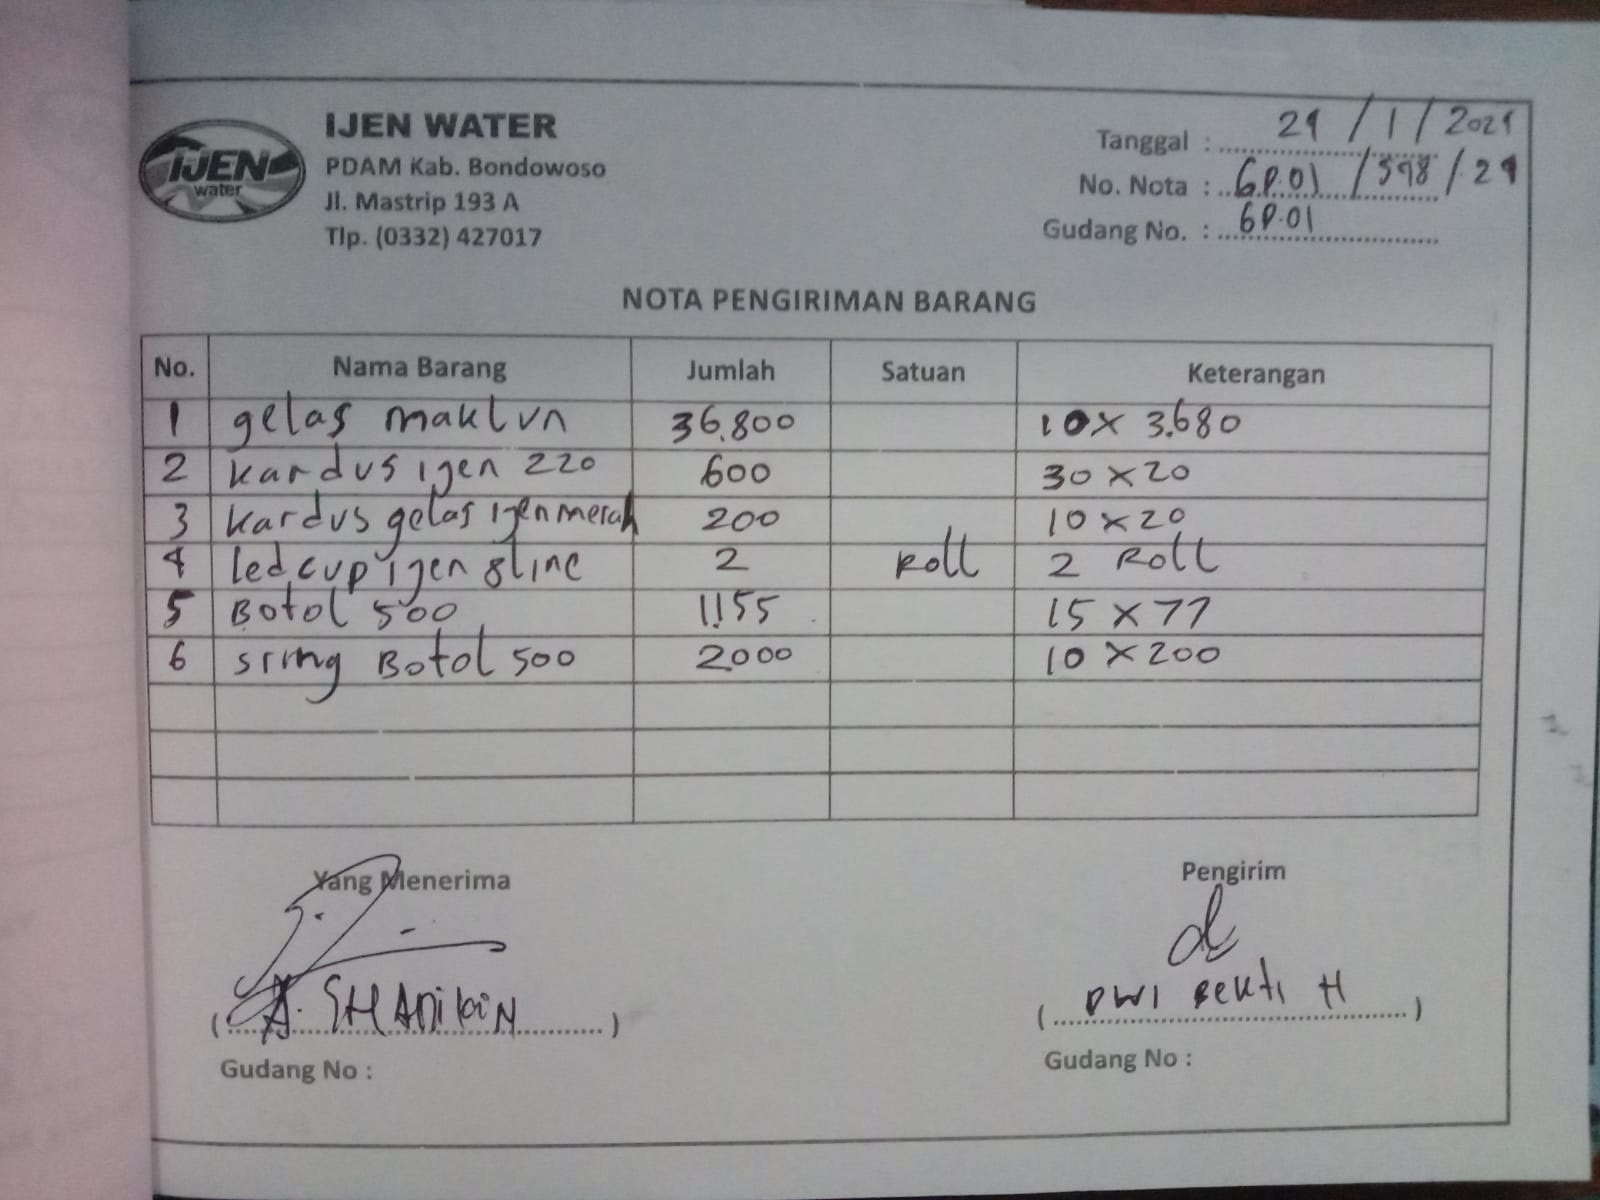 IJEN WATER
PDAM Kab. Bondowoso
Jl. Mastrip 193 A
Tlp. (0332) 427017
IJEN
water
Tanggal : 24 / 1 / 2024
No. Nota : GP.01 / 598 / 24
Gudang No. : GP.01
NOTA PENGIRIMAN BARANG
No. Nama Barang Jumlah Satuan Keterangan
1 gelas maklun 36.800 10 x 3.680
2 kardus ijen 220 600 30 x 20
3 kardus gelas ijen merah 200 10 x 20
4 led cup ijen 8 line 2 Roll 2 Roll
5 Botol 500 1.155 15 x 77
6 Botol 500 2000 10 x 200
Yang Menerima Pengirim
( A. ) ( DWI Bekti H )
Gudang No : Gudang No :